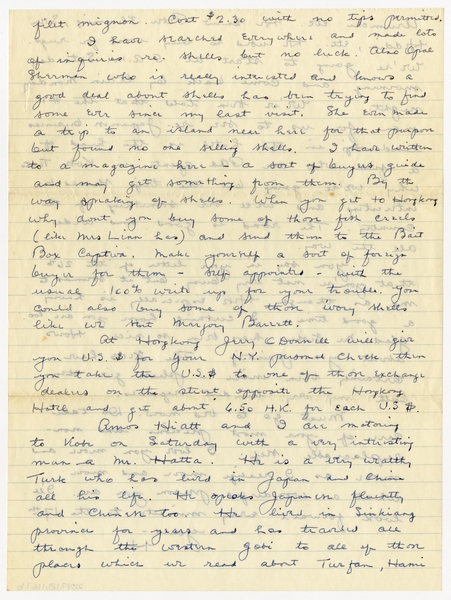 filet mignon. Cost $2.30 with no tips permitted.
I have searched everywhere and made lots
of inquiries re. shells but no luck. Also Opal
Sherman who is really interested and knows a
good deal about shells has been trying to find
some ever since my last visit. She even made
a trip to an island near here for that purpose
but found no one selling shells. I have written
to a magazine here - a sort of buyers guide
and may get something from them. By the
way speaking of shells. When you get to Hongkong
why dont you buy some of those fish creels
(like Mrs Linn has) and send them to the Bait
Box Captiva. Make yourself a sort of foreign
buyer for them - self appointed - with the
usual 100% write up for your trouble. You
could also buy some of those ivory shells
like we sent Marjory Barrett.
At Hongkong Jerry O Donnell will give
you U.S. $ for your N.Y. personal check then
you take the U.S. $ to one of those exchange
dealers on the street opposite the Hongkong
Hotel and get about 6.50 H.K. for each U.S $.
Amos Hiatt and I are motoring
to Kobe on Saturday with a very interesting
man - a Mr. Hatta. He is a very wealthy
Turk who has lived in Japan and China
all his life. He speaks Japanese fluently
and Chinese too. He lived in Sinkiang
province for years and has traveled all
through the western Gobi to all of those
places which we read about Turfan, Hami